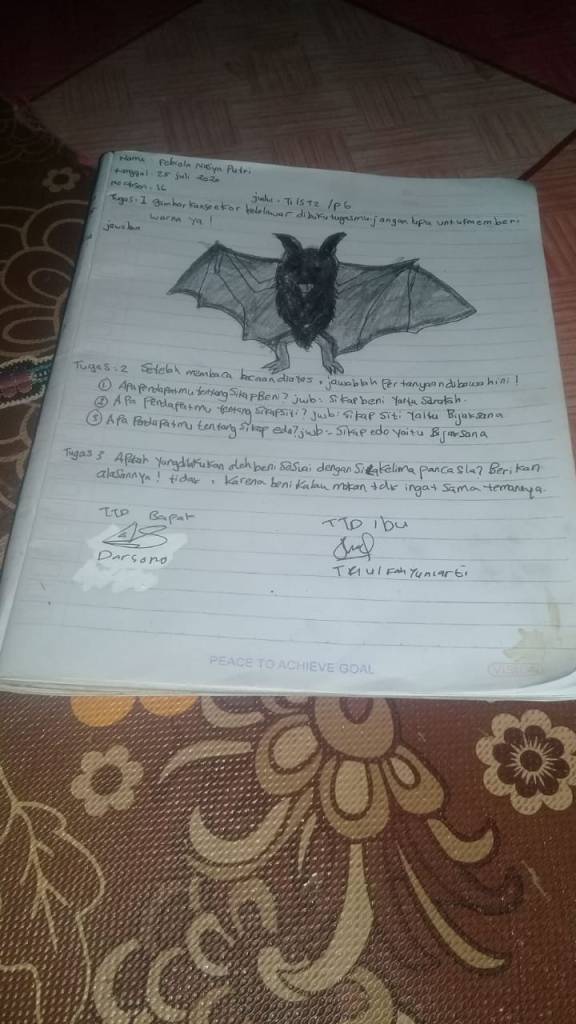 Nama : Pebiola Nasya Putri
tanggal : 25 juli 2020
no absen : 16
judul : T1 ST2 /P6
Tugas : I gambarkan seekor kelelawar dibuku tugasmu, jangan lupa untuk memberi
warna ya !
jawaban
Tugas : 2 Setelah membaca bacaan diatas , jawablah Pertanyaan dibawah ini !
① Apa Pendapatmu tentang sikap Beni ? jwb : Sikap beni yaitu Sarakah.
② Apa Pendapatmu tentang sikap siti ? jwb : sikap Siti yaitu Bijaksana
③ Apa Pendapatmu tentang sikap edo ? jwb : Sikap edo yaitu Bijaksana
Tugas 3 Apakah yang dilakukan oleh beni sesuai dengan Sila kelima pancasla? Berikan
alasannya ! tidak , karena beni kalau makan tdk ingat sama temannya.
TTD Bapak
TTD Ibu
Darsono
PEACE TO ACHIEVE GOAL